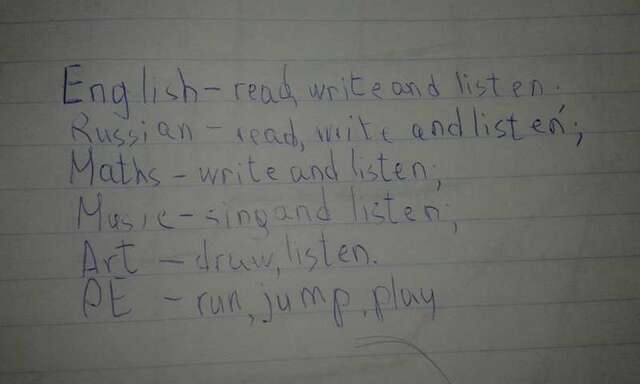 English - read, write and listen.
Russian - read, write and listen;
Maths - write and listen;
Music - sing and listen;
Art - draw, listen.
PE - run, jump, play